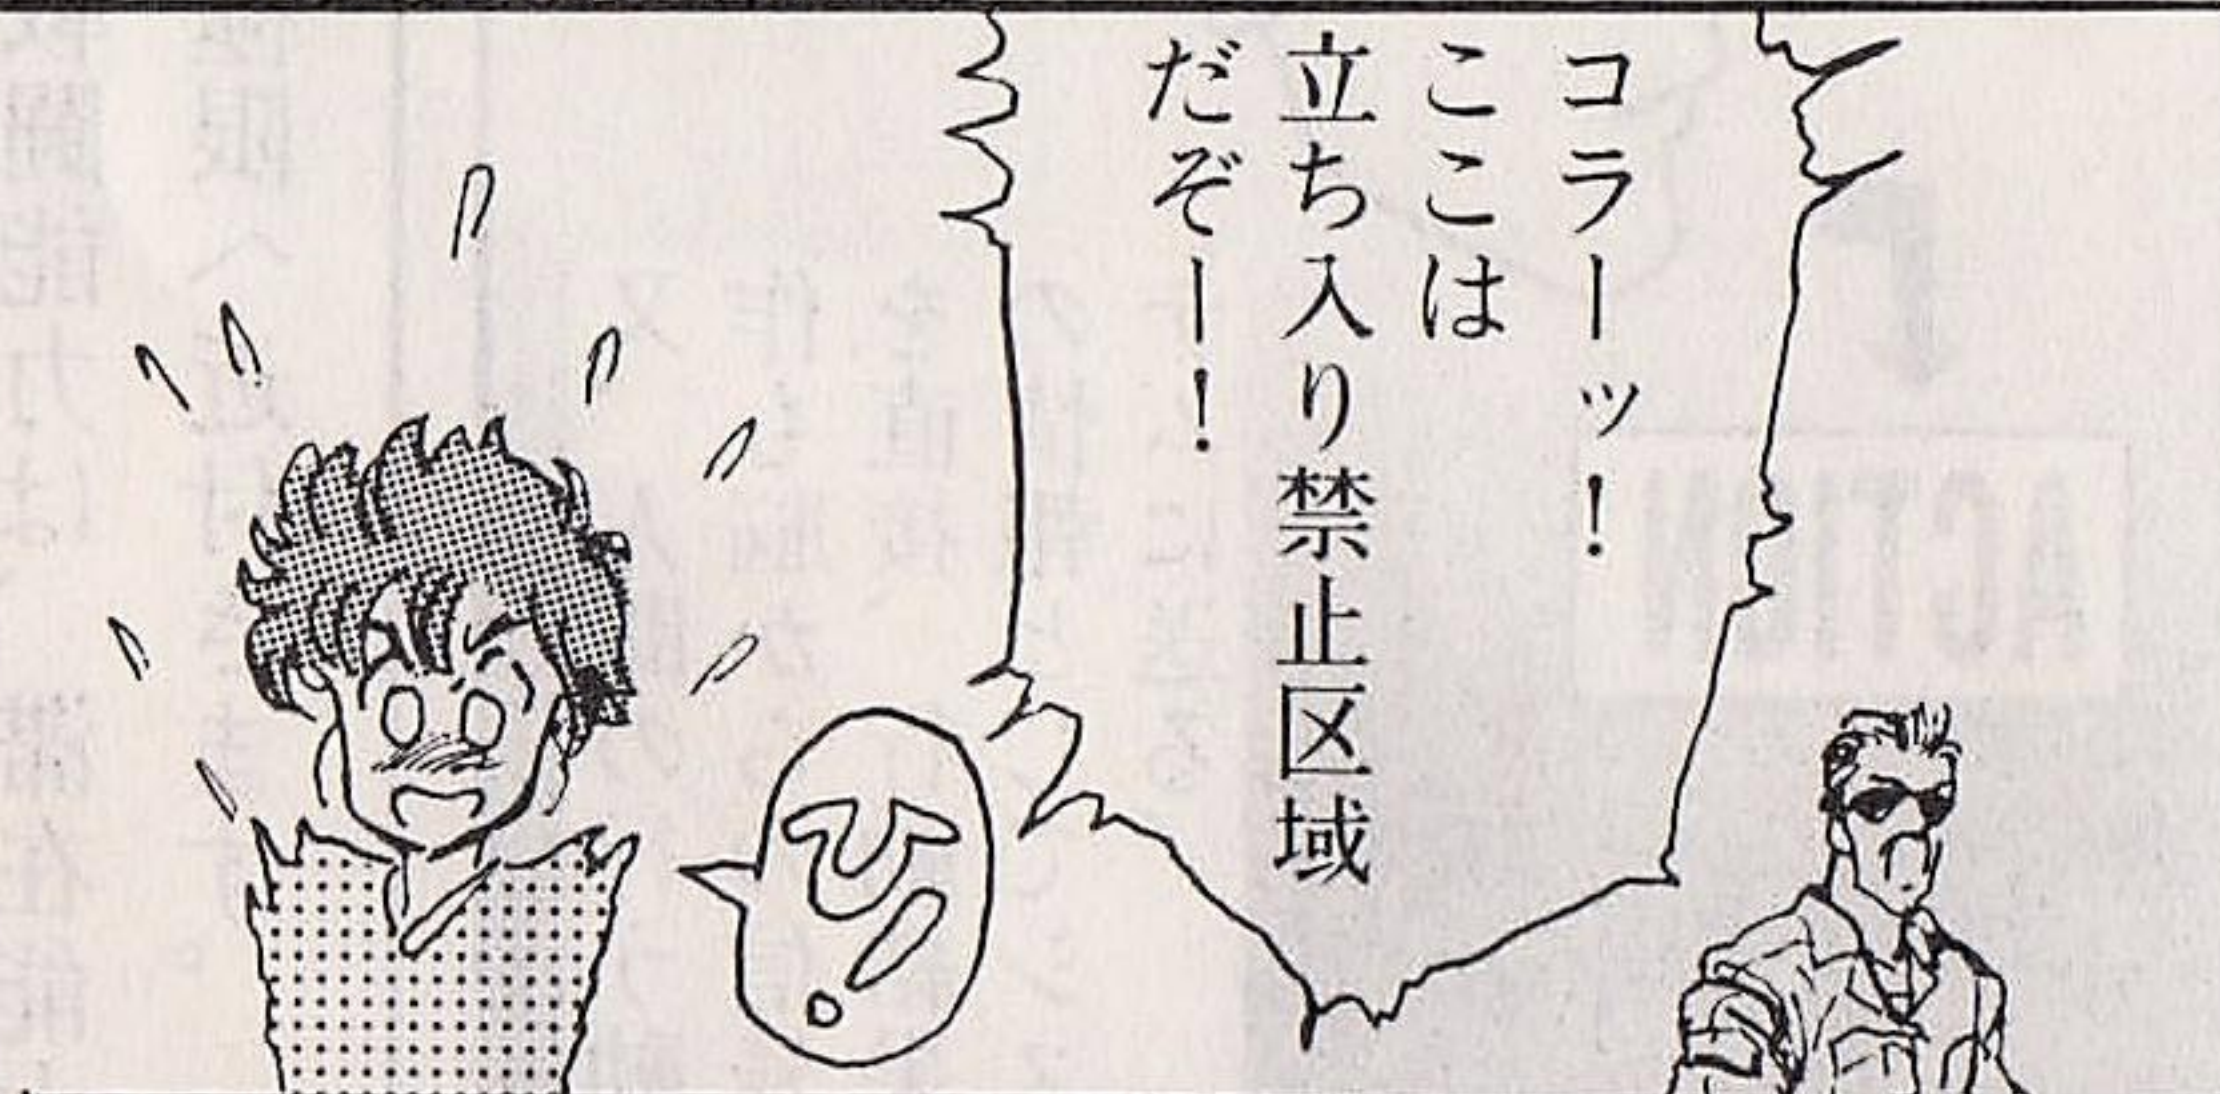 コラーッ！
ここは
立ち入り禁止区域
だぞー！
ひ！